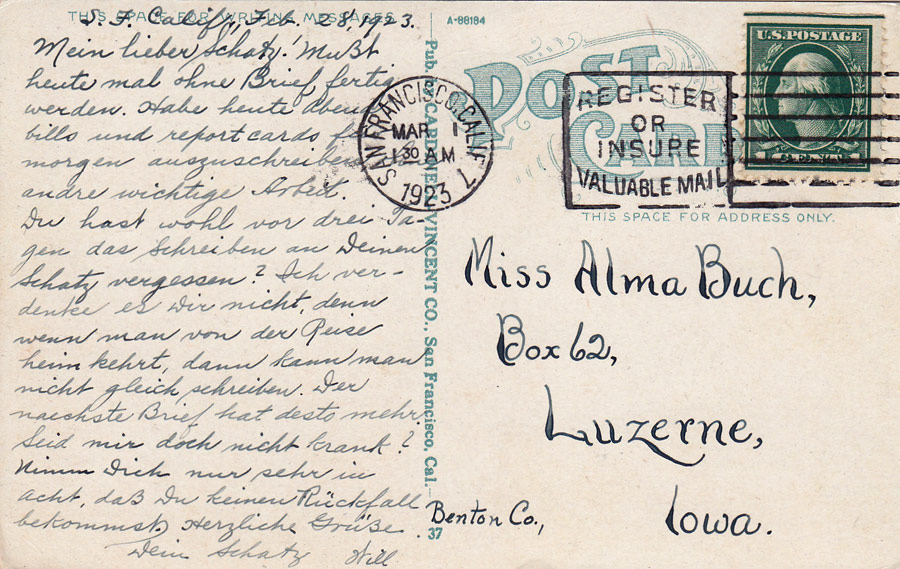 THIS SPACE FOR WRITING MESSAGES
S. F. Calif., Feb. 28, 1923.
Mein lieber Schatz! Mußt
heute mal ohne Brief fertig
werden. Habe heute abend
bills und report cards
morgen auszuschreiben
andre wichtige Arbeit.
Du hast wohl vor drei Ta-
gen das Schreiben an Deinen
Schatz vergessen? Ich ver-
denke es Dir nicht, denn
wenn man von der Reise
heim kehrt, dann kann man
nicht gleich schreiben. Der
naechste Brief hat desto mehr.
Seid mir doch nicht krank?
Nimm Dich nur sehr in
acht, daß Du keinen Rückfall
bekommst. Herzliche Grüße
Dein Schatz Will
Pub. by CARDINELL-VINCENT CO., San Francisco, Cal.
37
A-88184
POST
CARD
U.S. POSTAGE
SAN FRANCISCO, CALIF.
MAR 1
1 30 AM
1923
REGISTER
OR
INSURE
VALUABLE MAIL
THIS SPACE FOR ADDRESS ONLY.
Miss Alma Buch,
Box 62,
Luzerne,
Benton Co., Iowa.